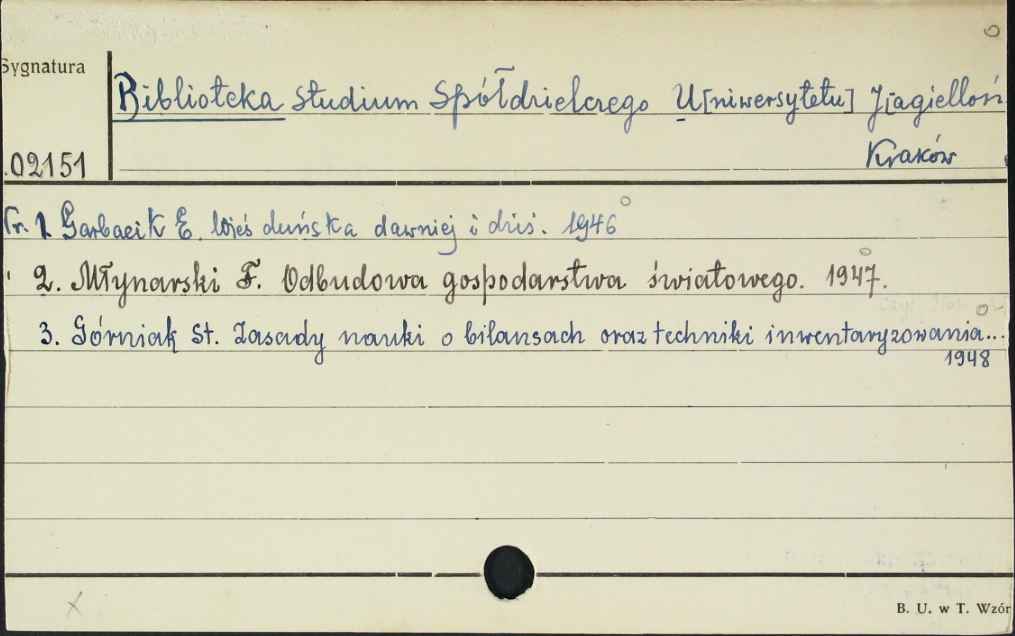 Sygnatura
Biblioteka Studium Spółdzielczego U[niwersytetu] J[agielloń
Kraków
02151
Nr. 1. Garbacik E. Wieś duńska dawniej i dziś. 1946
2. Młynarski F. Odbudowa gospodarstwa światowego. 1947.
3. Górniak St. Zasady nauki o bilansach oraz techniki inwentaryzowania...
1948
B. U. w T. Wzór